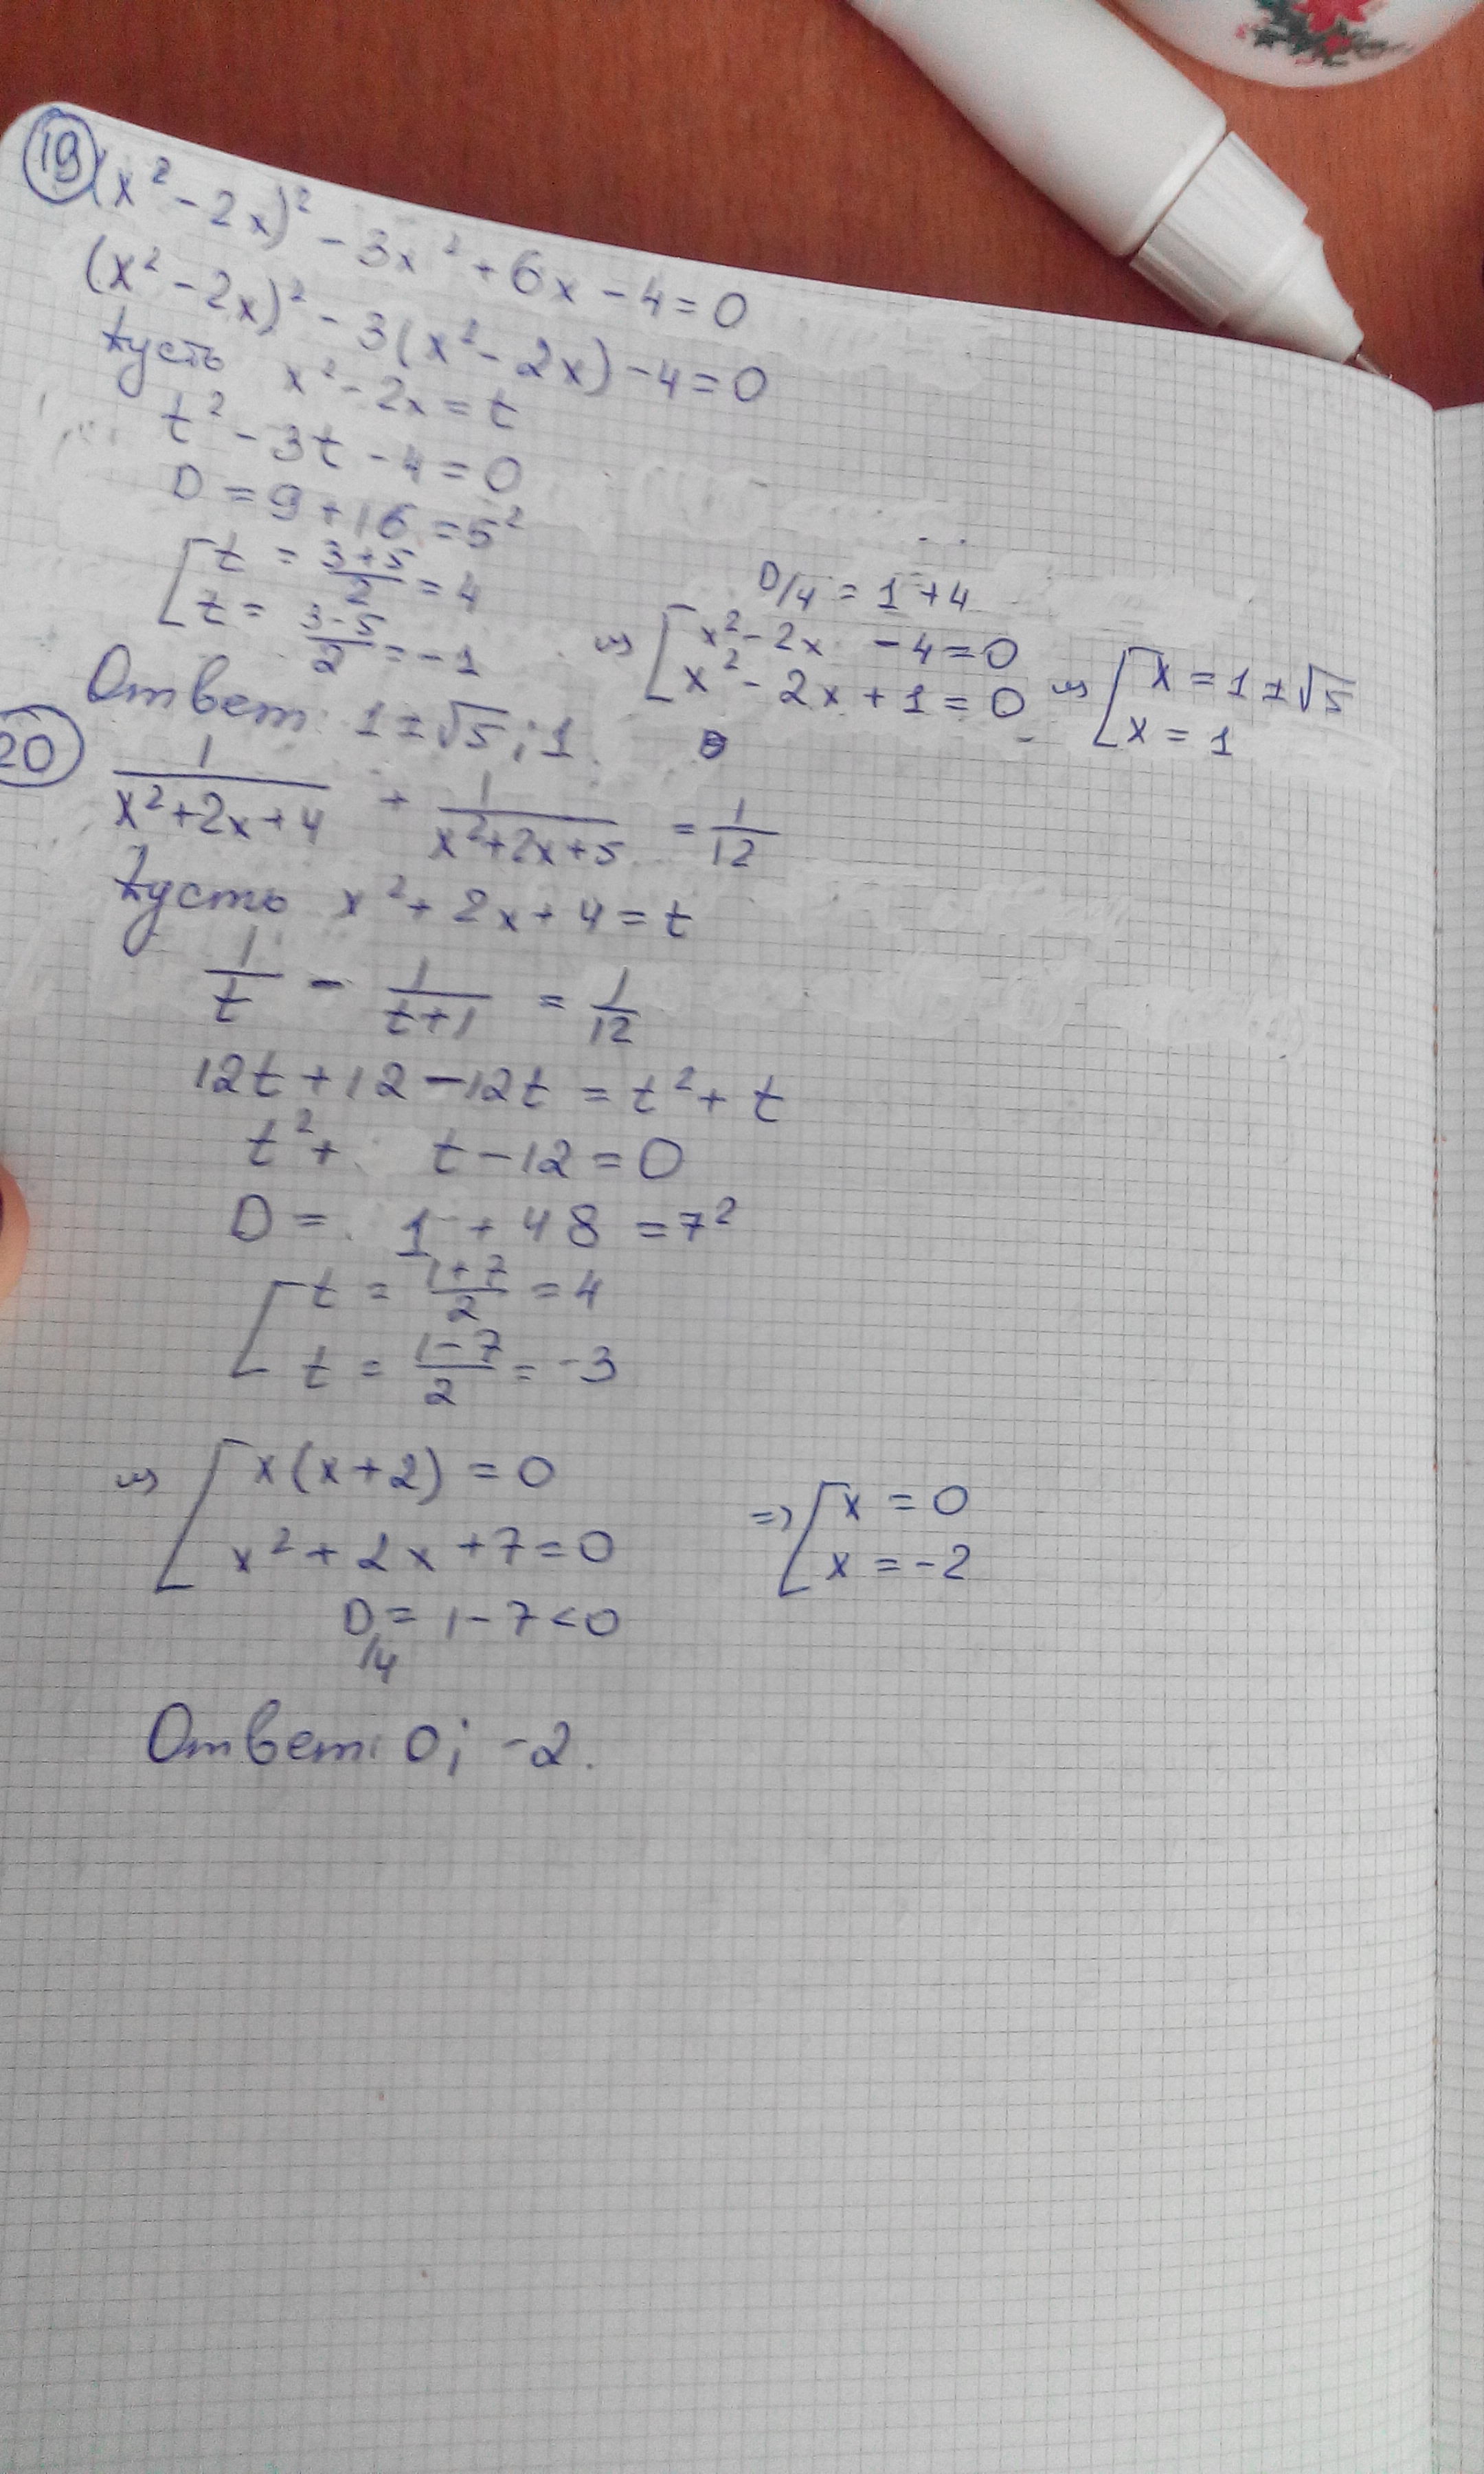 19 (x² - 2x)² - 3x² + 6x - 4 = 0
(x² - 2x)² - 3(x² - 2x) - 4 = 0
Пусть x² - 2x = t
t² - 3t - 4 = 0
D = 9 + 16 = 5²
[ t = (3+5)/2 = 4
t = (3-5)/2 = -1
D/4 = 1 + 4
=> [ x² - 2x - 4 = 0
x² - 2x + 1 = 0
=> [ x = 1 ± √5
x = 1
Ответ: 1 ± √5; 1.
20 1/(x² + 2x + 4) + 1/(x² + 2x + 5) = 1/12
Пусть x² + 2x + 4 = t
1/t - 1/(t+1) = 1/12
12t + 12 - 12t = t² + t
t² + t - 12 = 0
D = 1 + 48 = 7²
[ t = (1+7)/2 = 4
t = (1-7)/2 = -3
=> [ x(x+2) = 0
x² + 2x + 7 = 0
D/4 = 1 - 7 < 0
=> [ x = 0
x = -2
Ответ: 0; -2.